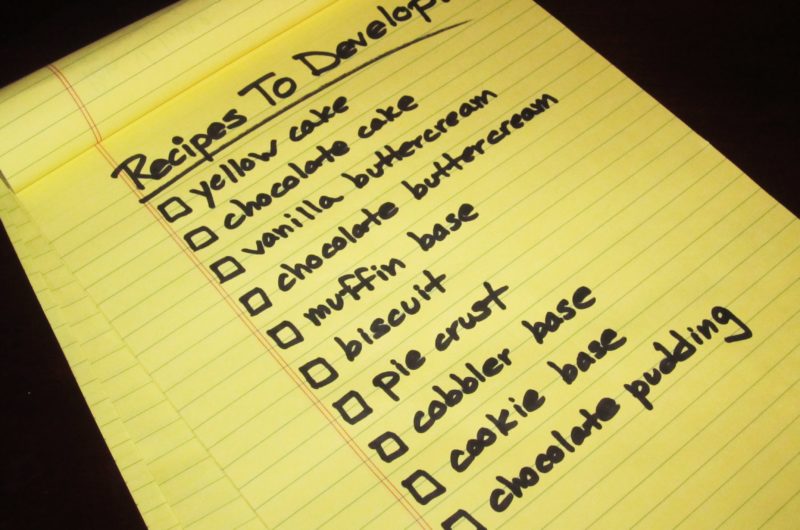 Recipes To Develop:
yellow cake
chocolate cake
vanilla buttercream
chocolate buttercream
muffin base
biscuit
pie crust
cobbler base
cookie base
chocolate pudding